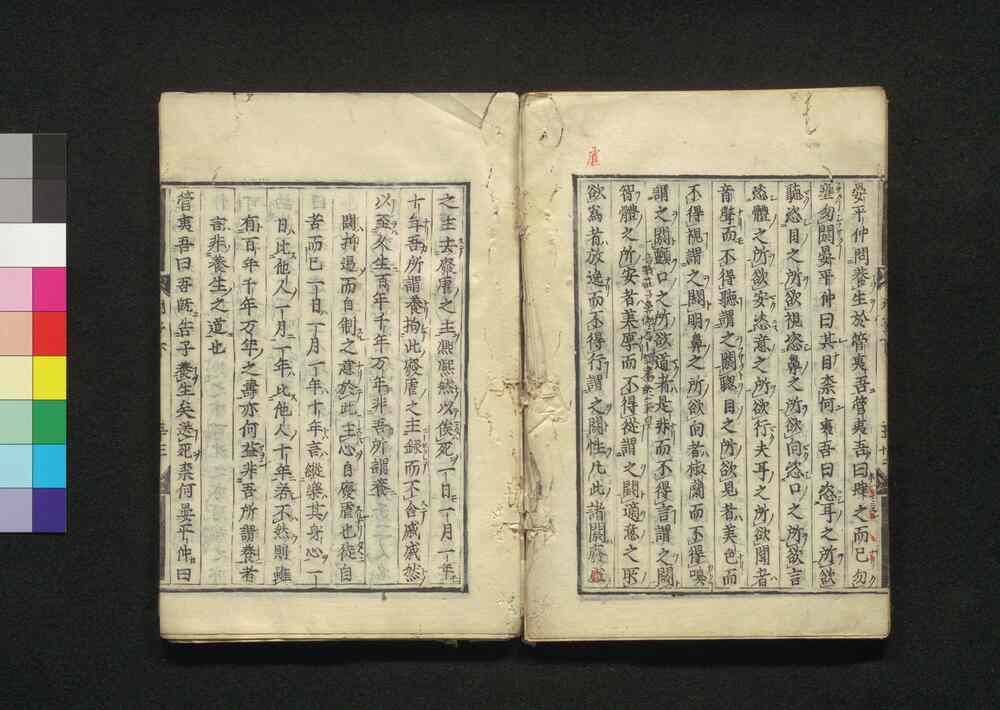 晏平仲問養生於管夷吾管夷吾曰肆之而已勿
壅勿閼晏平仲曰其目柰何夷吾曰恣耳之所欲
聽恣目之所欲視恣鼻之所欲向恣口之所欲言
恣體之所欲安恣意之所欲行夫耳之所欲聞者
音聲而不得聽謂之閼聰目之所欲見者美色而
不得視謂之閼明鼻之所欲向者椒蘭而不得嗅
謂之閼顫口之所欲道者是非而不得言謂之閼
智體之所安者美厚而不得從謂之閼適意之所
欲爲者放逸而不得行謂之閼性凡此諸閼廢虐
之主去廢虐之主熙熙然以俟死一日一月一年
十年吾所謂養拘此廢虐之主録而不舍戚戚然
以至久生百年千年万年非吾所謂養
閼抑遏而自制之意於此主心自廢虐也徒自
苦而已一日一月一年十年言縱樂其身心一
日比他人一月一年比他人十年若不然則雖
有百年千年万年之壽亦何益非吾所謂養者
言非養生之道也
管夷吾曰吾既告子養生矣送死柰何晏平仲曰